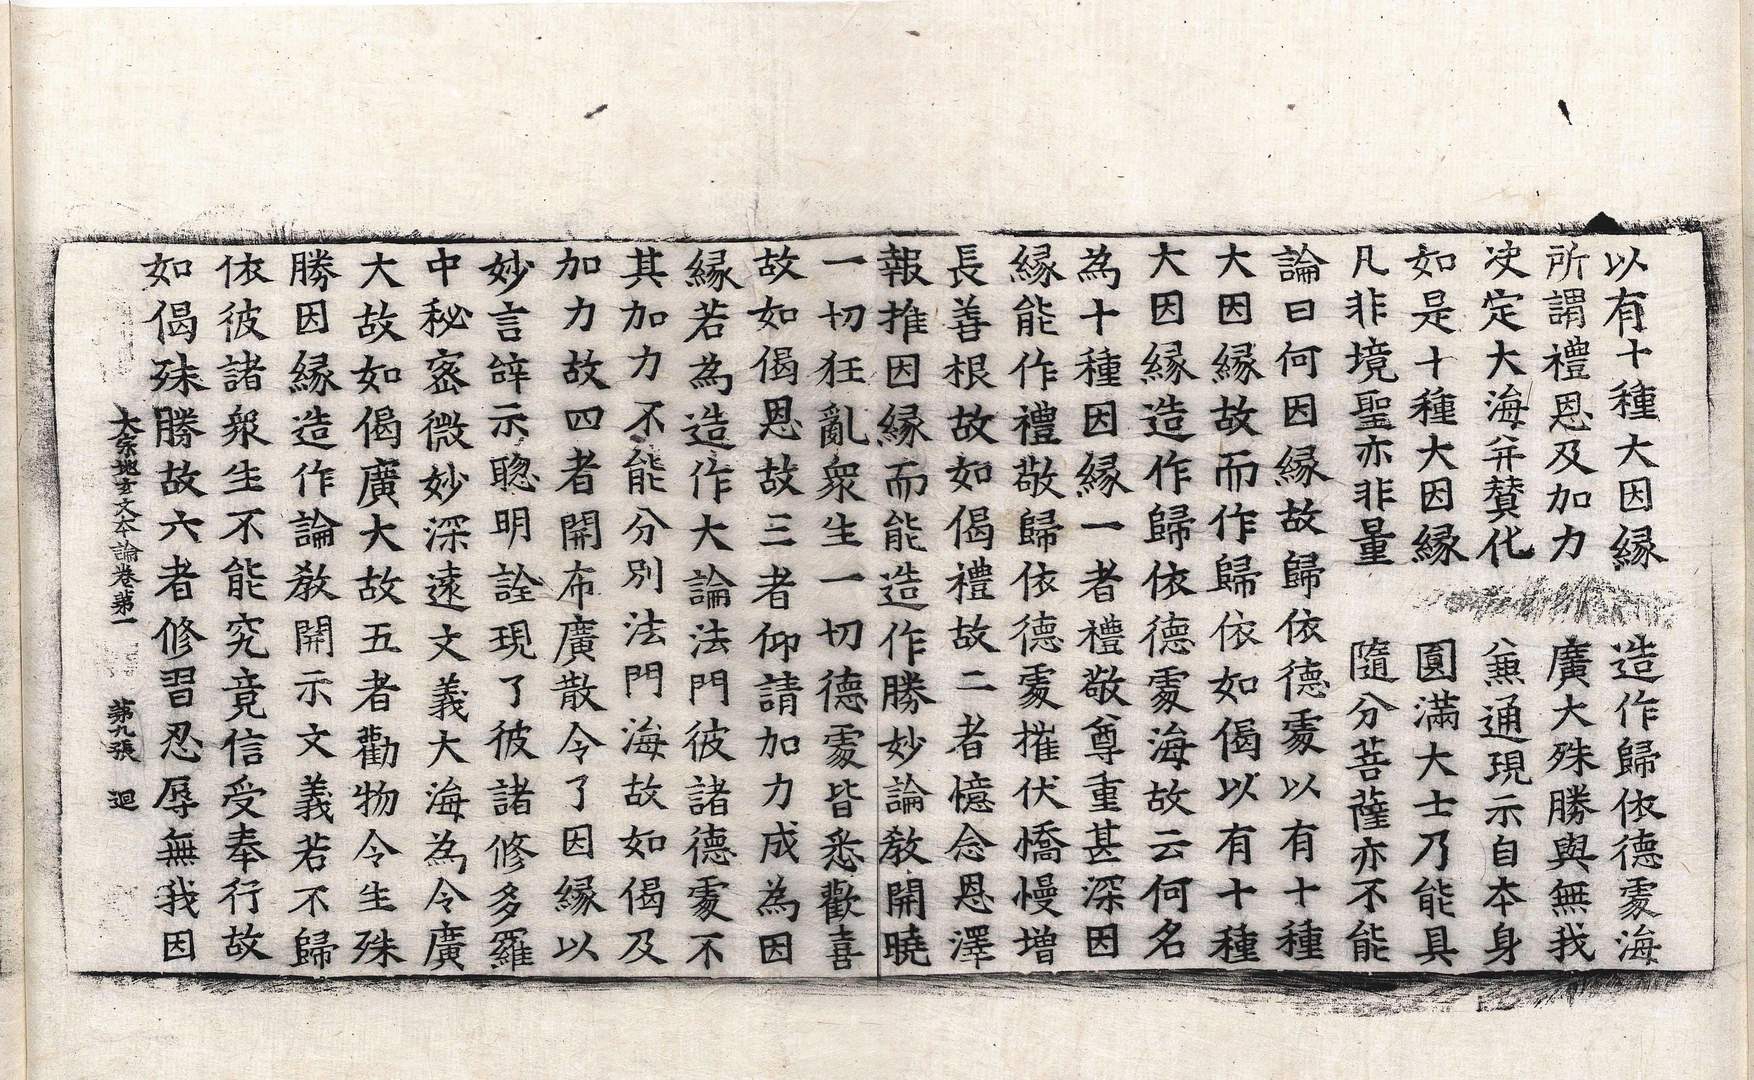 以有十種大因縁　造作歸依德䖏海
所謂禮恩及加力　廣大殊勝與無我
决定大海并賛化　兼通現示自本身
如是十種大因縁　圓滿大士乃能具
凡非境聖亦非量　隨分菩薩亦不能
論曰何因縁故歸依德䖏以有十種
大因縁故而作歸依如偈以有十種
大因縁造作歸依德䖏海故云何名
為十種因縁一者禮敬尊重甚深因
縁能作禮敬歸依德䖏摧伏憍慢增
長善根故如偈禮故二者憶念恩澤
報推因縁而能造作勝妙論教開曉
一切狂亂衆生一切德䖏皆悉歡喜
故如偈恩故三者仰請加力成為因
縁若為造作大論法門彼諸德䖏不
其加力不能分別法門海故如偈及
加力故四者開布廣散令了因縁以
妙言辝示聦明詮現了彼諸修多羅
中秘宻微妙深逺文義大海為令廣
大故如偈廣大故五者勸物令生殊
勝因縁造作論教開示文義若不歸
依彼諸衆生不能究竟信受奉行故
如偈殊勝故六者修習忍辱無我因
大宗地玄文本論卷第一　第九張　迴